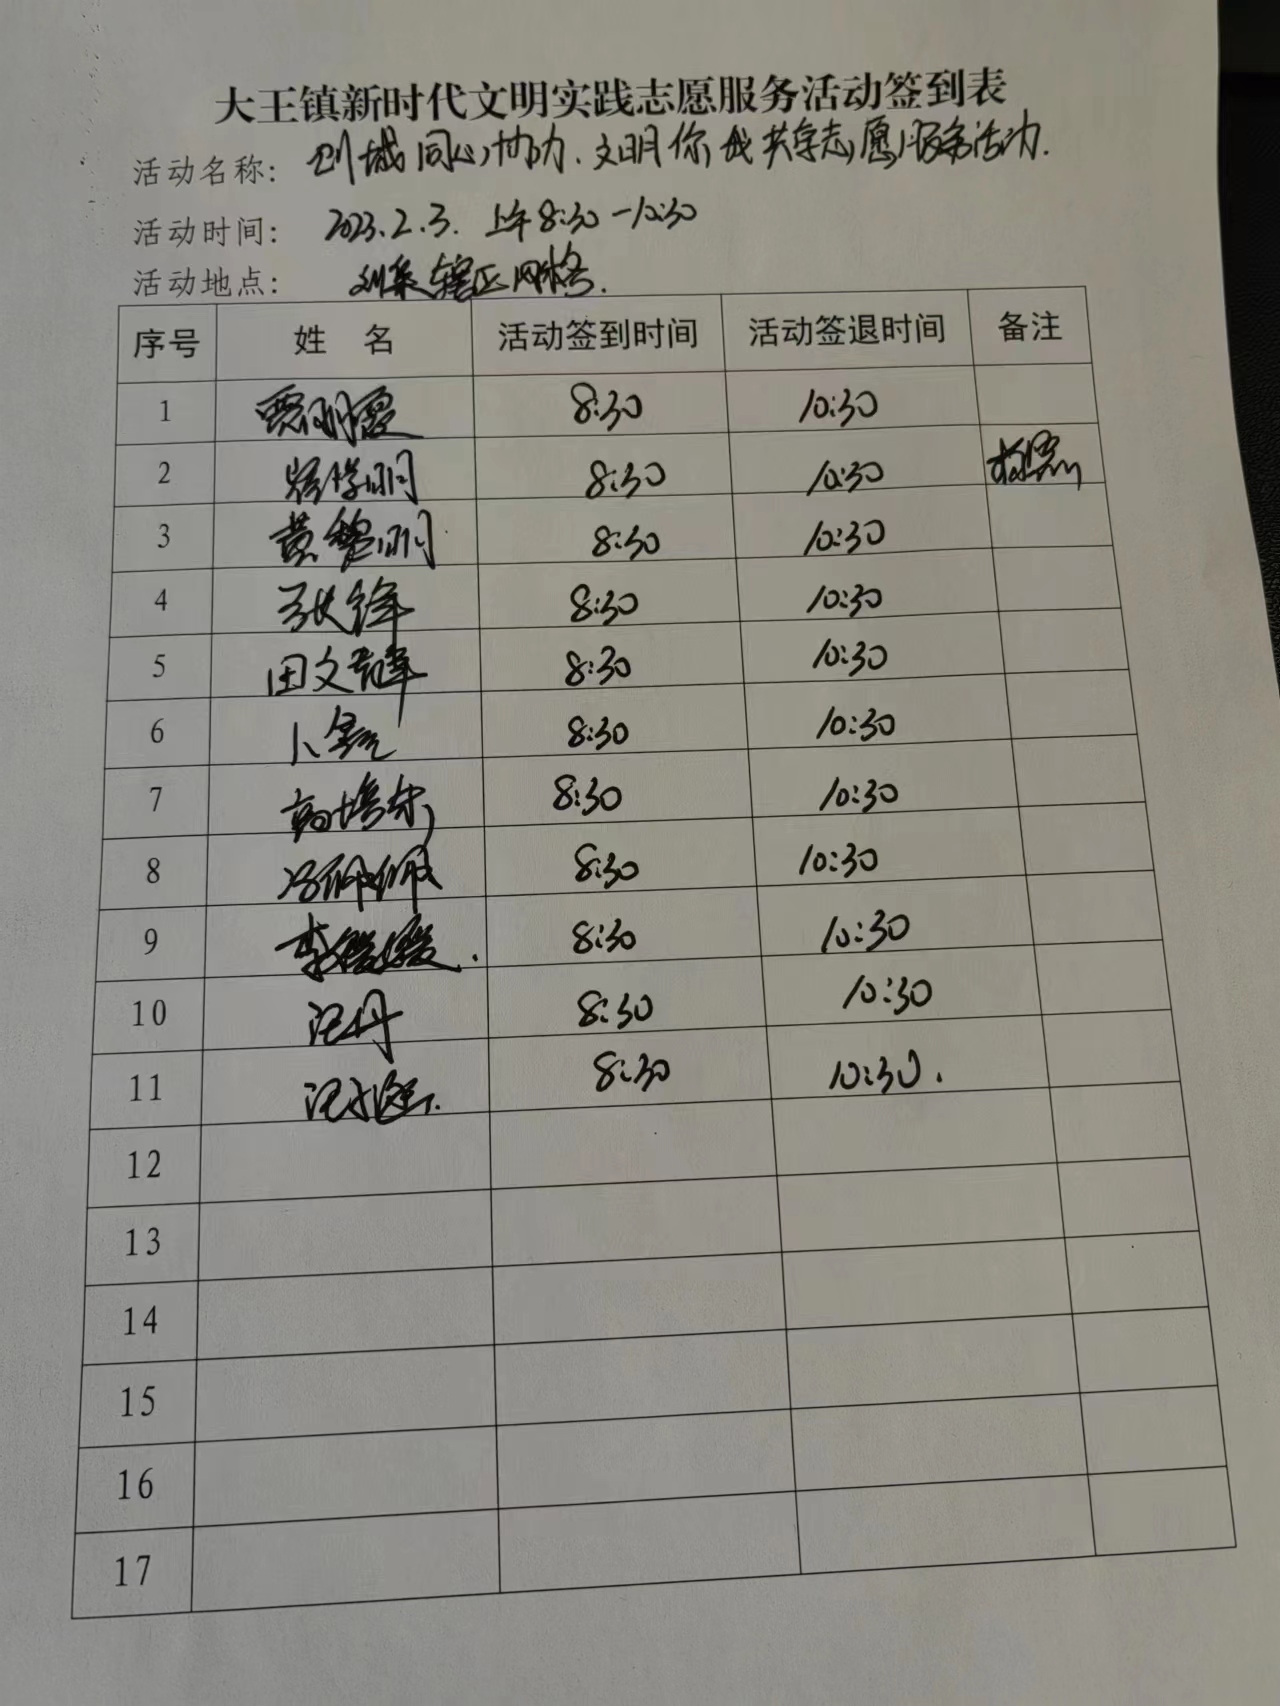 大王镇新时代文明实践志愿服务活动签到表
活动名称: 创城同心协力、文明你我共享志愿服务活动.
活动时间: 2023.2.3. 上午8:30-10:30
活动地点: 刘集辖区网格.
序号 姓 名 活动签到时间 活动签退时间 备注
1 8:30 10:30
2 8:30 10:30 拍照
3 黄黎明 8:30 10:30
4 张锋 8:30 10:30
5 田文峰 8:30 10:30
6 8:30 10:30
7 8:30 10:30
8 冯佩佩 8:30 10:30
9 李媛媛. 8:30 10:30
10 汜丹 8:30 10:30
11 8:30 10:30.
12
13
14
15
16
17